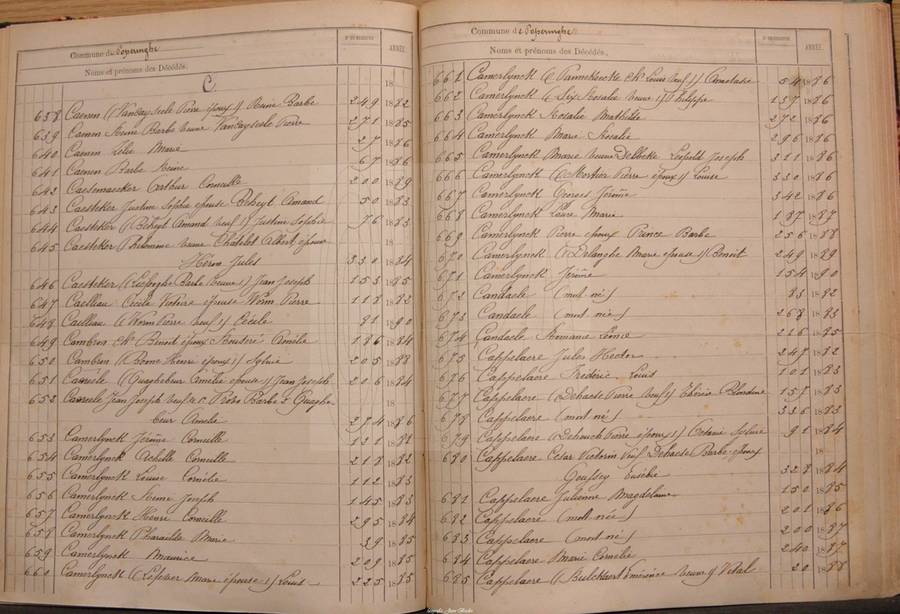 Commune de Poperinghe
N° DU REGISTRE
ANNÉE.
Noms et prénoms des Décédés.
18
C
638 Caenen (Vandaysele Pierre époux s/ Reine Barbe 249 1882
639 Caenen Reine Barbe veuve Vandaysele Pierre 271 1885
640 Caenen Marie 27 1886
641 Caenen Barbe Reine 67 1886
642 Caesemaecker Arthur Corneille 200 1889
643 Caesteker Justine Sophie épouse Beheyt Amand 50 1883
644 Caesteker (Beheyt Amand veuf s/ Justine Sophie 76 1883
645 Caesteker Philomène veuve Chatelet Albert, épouse 18
Jules 330 1884
646 Caesteker Barbe veuve s/ Jean Joseph 153 1885
647 Caelliau Cécile Victoire épouse Worm Pierre 118 1882
648 Caelliau (Worm Pierre veuf s/ Cécile 81 1890
649 Cambron Ch. Benoit époux Amélie 186 1884
650 Cambron (Boone Henri époux s/ Sylvie 205 1888
651 (Quaghebeur Amélie épouse s/ Jean Joseph 206 1884
652 Jean Joseph veuf Barbe & Quaghe- 18
beur Amélie 274 1886
653 Camerlynck Jérôme Corneille 121 1882
654 Camerlynck Achille Corneille 218 1882
655 Camerlynck Louise Cornélie 112 1883
656 Camerlynck Joseph 145 1883
657 Camerlynck Henri Corneille 295 1884
658 Camerlynck Pharaïlde Marie 39 1885
659 Camerlynck Maurice 209 1885
660 Camerlynck Marie épouse s/ Louis 225 1885
Commune de Poperinghe
N° DU REGISTRE
ANNÉE.
Noms et prénoms des Décédés.
661 Camerlynck (Pannekoucke Ch. Louis veuf s/ Anastasie 54 1886
662 Camerlynck (Six Rosalie veuve s/ Philippe 137 1886
663 Camerlynck Rosalie Mathilde 272 1886
664 Camerlynck Marie Rosalie 296 1886
665 Camerlynck Marie veuve Delbeke Léopold Joseph 311 1886
666 Camerlynck (Mortier Pierre époux s/ Louise 330 1886
667 Camerlynck Georges Jérôme 342 1886
668 Camerlynck Laure Marie 187 1887
669 Camerlynck Pierre époux Prince Barbe 256 1888
670 Camerlynck (Delanghe Marie épouse s/ Benoit 249 1889
671 Camerlynck Jérôme 154 1890
672 Candaele (mort né) 83 1882
673 Candaele (mort née) 268 1883
674 Candaele Romanie Léonie 216 1885
675 Cappelaere Jules Hector 247 1882
676 Cappelaere Frédéric Louis 101 1883
677 Cappelaere (Dehaese Pierre veuf s/ Thérèse Blondine 157 1883
678 Cappelaere (mort né) 336 1883
679 Cappelaere (Dehouck Pierre époux s/ Octavie Sylvie 91 1884
680 Cappelaere César Victorin veuf Dehaese Barbe époux 18
Goussey Eusébie 328 1884
681 Cappelaere Julienne Magdeleine 150 1885
682 Cappelaere (mort née) 201 1886
683 Cappelaere (mort né) 200 1887
684 Cappelaere Marie Cornélie 240 1887
685 Cappelaere (Bulckaert Eménence veuve s/ Vital 20 1888